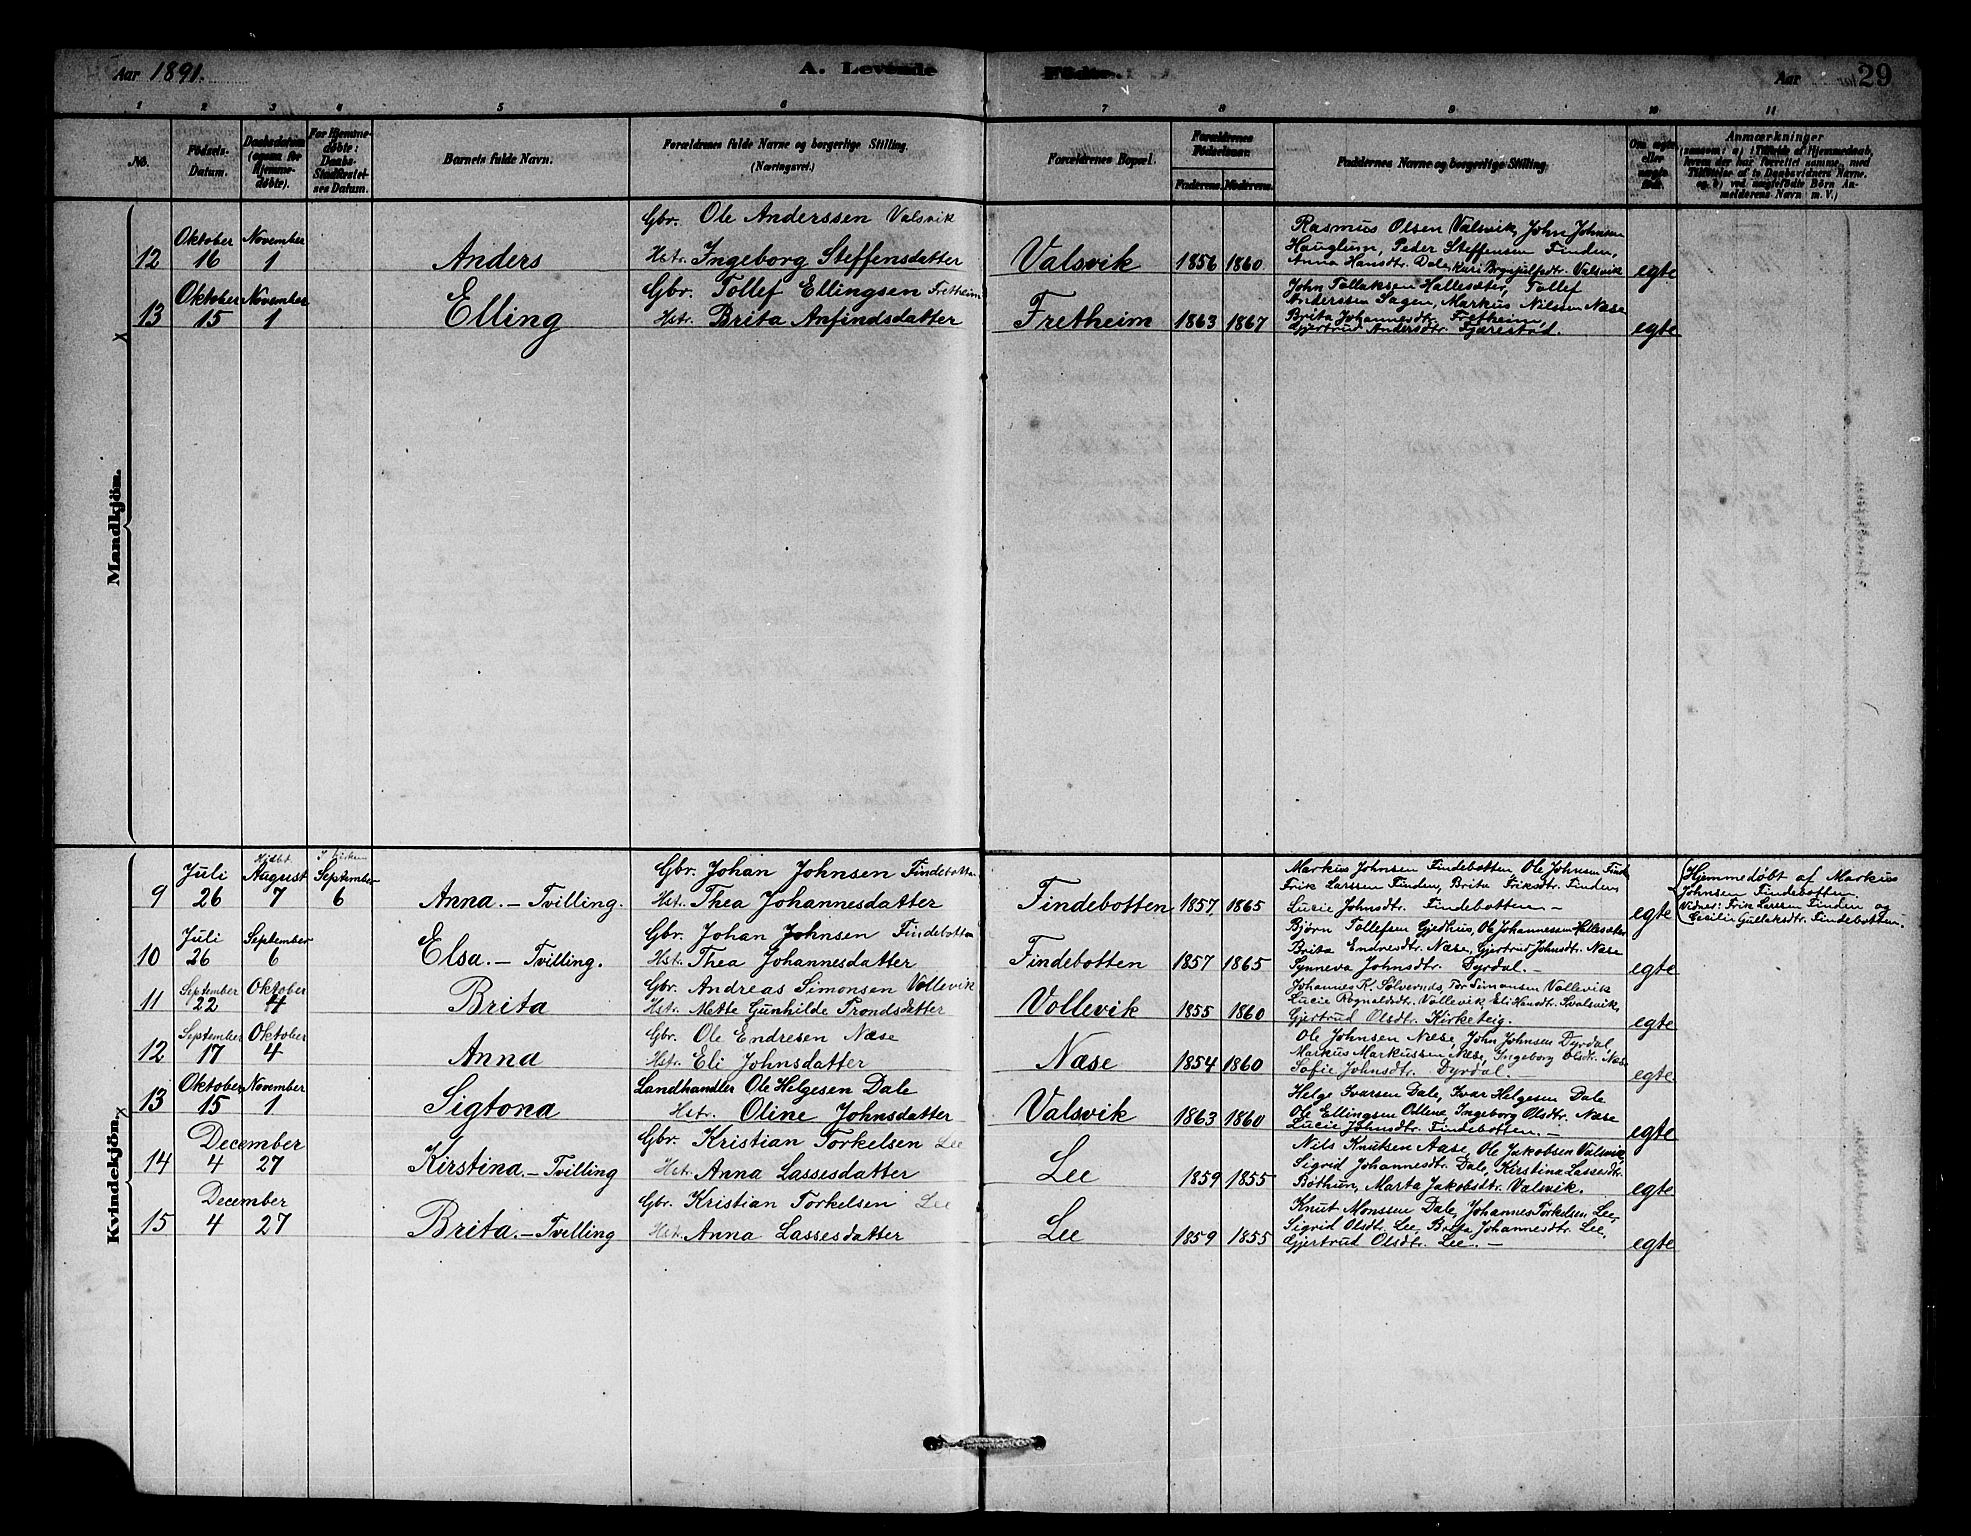 Aar 1891. A. Levende Fødte. Aar 29
1 2 3 4 5 6 7 8 9 10 11
No. Fødsels-Datum. Daabsdatum (ogsaa for Hjemmedøbte). For Hjemmedøbte: Daabs-Stadfæstelses Datum. Barnets fulde Navn. Forældrenes fulde Navne og borgerlige Stilling. (Næringsvei.) Forældrenes Bopæl. Forældrenes Fødselsaar. Faderens. Moderens. Faddernes Navne og borgerlige Stilling. Om ægte eller uægte født. Anmærkninger (saasom: a) i Tilfælde af Hjemmedaab, hvem der har forrettet samme, med Tilføielse af to Daabsvidners Navne, og b) ved uægtefødte Børn Anmelderens Navn m. V.)
Mandkjön.
12 Oktober 16 November 1 Anders Gbr. Ole Anderssen Valsvik
Hst. Ingeborg Steffensdatter Valsvik 1856 1860 Rasmus Olsen Valsvik, John Johnsen
Hauglum, Peder Steffensen Finden,
Anna Hansdtr. Dale, Kari Brynjulfsdtr. Valsvik egte
13 Oktober 15 November 1 Elling Gbr. Tollef Ellingsen Fretheim
Hst. Brita Anfindsdatter Fretheim 1863 1867 John Tollaksen Hallesæter, Tollef
Anderssen Sagen, Markus Nilsen Næse
Brita Johannesdtr. Fretheim
Gjertrud Andersdtr. Fjærestød. egte
Kvindekjön.
9 Juli 26 Hjdbt. August 7 I Kirken September 6 Anna. - Tvilling. Gbr. Johan Johnsen Findebotten
Hst. Thea Johannesdatter Findebotten 1857 1865 Markus Johnsen Findebotten, Ole Johnsen Find.
Erik Larssen Finden, Brita Eriksdtr. Finden
Lucie Johnsdtr. Findebotten - egte
(Hjemmedøbt af Markus
Johnsen Findebotten.
Vidner: Erik Larssen Finden og
Cecilie Gulleksdtr. Findebotten.
10 Juli 26 September 6 Elsa. - Tvilling. Gbr. Johan Johnsen Findebotten
Hst. Thea Johannesdatter Findebotten 1857 1865 Bjørn Tollefsen Gjedhus, Ole Johannessen Hallesæter
Brita Endresdtr. Næse, Gjertrud Johnsdtr. Næse
Synneva Johnsdtr. Dyrdal. - egte
11 September 22 Oktober 4 Brita Gbr. Andreas Simonsen Vollevik
Hst. Mette Gunhilde Trondsdatter Vollevik 1855 1860 Johannes R. Sølvernds, Tor Simonsen Vollevik
Lucie Rognaldsdtr. Vollevik, Eli Hansdtr. Svalsvik,
Gjertrud Olsdtr. Kirketeig. egte
12 September 17 Oktober 4 Anna Gbr. Ole Endresen Næse
Hst. Eli Johnsdatter Næse 1854 1860 Ole Johnsen Næse, John Johnsen Dyrdal,
Markus Markussen Næse, Ingeborg Olsdtr. Næse
Sofie Johnsdtr. Dyrdal. egte
13 Oktober 15 November 1 Sigtona Landhandler Ole Helgesen Dale
Hstr. Oline Johnsdatter Valsvik 1863 1860 Helge Ivarsen Dale, Ivar Helgesen Dale
Ole Ellingsen Ottene, Ingeborg Olsdtr. Næse
Lucie Johnsdtr. Findebotten. - egte
14 December 4 27 Kirstina. - Tvilling Gbr. Kristian Torkelsen Lee
Hst. Anna Lassesdatter Lee 1859 1855 Nils Knutsen Aase, Ole Jakobsen Valsvik
Sigrid Johannesdtr. Dale, Kirstina Lassesdtr.
Bøthun, Marta Jakobsdtr. Valsvik. egte
15 December 4 27 Brita. - Tvilling Gbr. Kristian Torkelsen Lee
Hst. Anna Lassesdatter Lee 1859 1855 Knut Monssen Dale, Johannes Torkelsen Lee,
Sigrid Olsdtr. Lee, Brita Johannesdtr. Lee,
Gjertrud Olsdtr. Lee. - egte